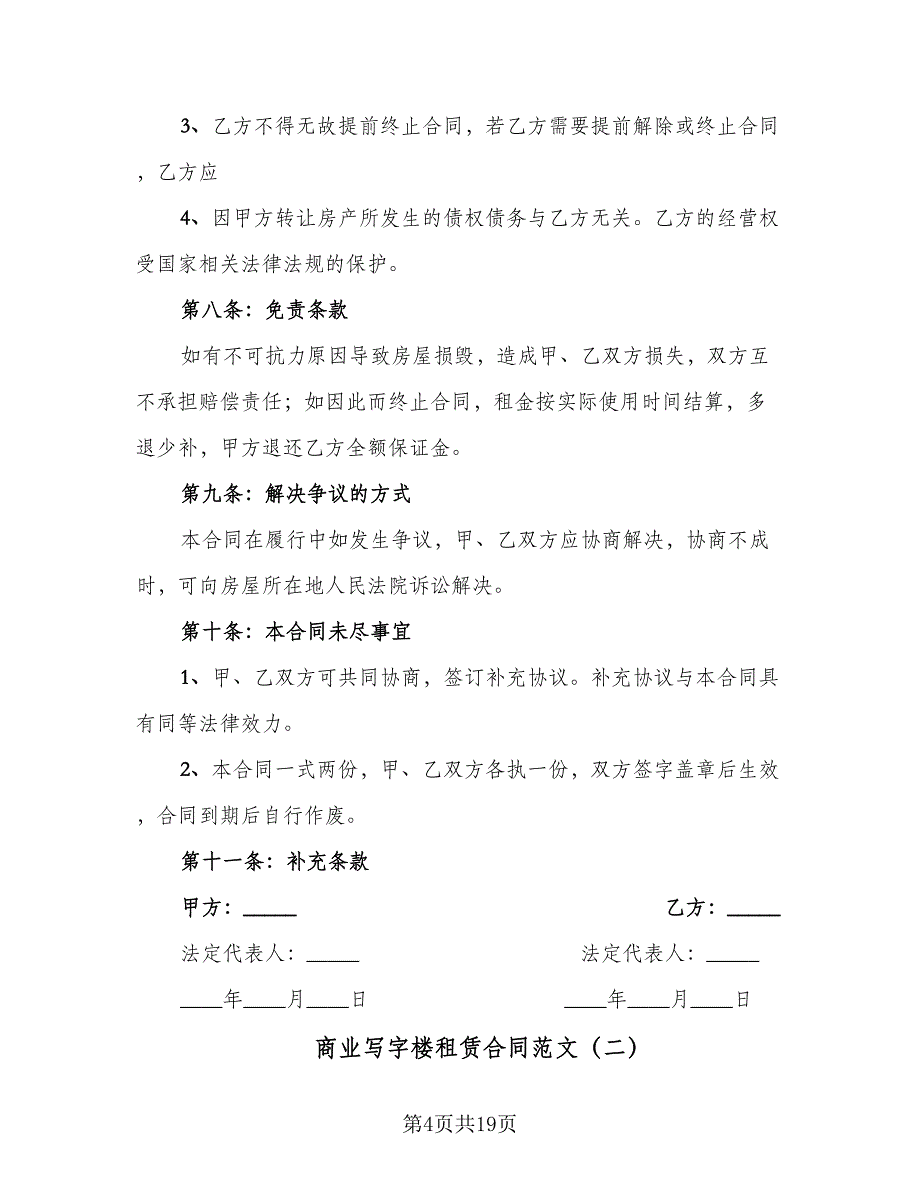 3、乙方不得无故提前终止合同，若乙方需要提前解除或终止合同
，乙方应
4、因甲方转让房产所发生的债权债务与乙方无关。乙方的经营权
受国家相关法律法规的保护。
第八条：免责条款
如有不可抗力原因导致房屋损毁，造成甲、乙双方损失，双方互
不承担赔偿责任；如因此而终止合同，租金按实际使用时间结算，多
退少补，甲方退还乙方全额保证金。
第九条：解决争议的方式
本合同在履行中如发生争议，甲、乙双方应协商解决，协商不成
时，可向房屋所在地人民法院诉讼解决。
第十条：本合同未尽事宜
1、甲、乙双方可共同协商，签订补充协议。补充协议与本合同具
有同等法律效力。
2、本合同一式两份，甲、乙双方各执一份，双方签字盖章后生效
，合同到期后自行作废。
第十一条：补充条款
甲方：_____ 乙方：_____
法定代表人：_____ 法定代表人：_____
____年____月____日 ____年____月____日
商业写字楼租赁合同范文（二）
第4页共19页